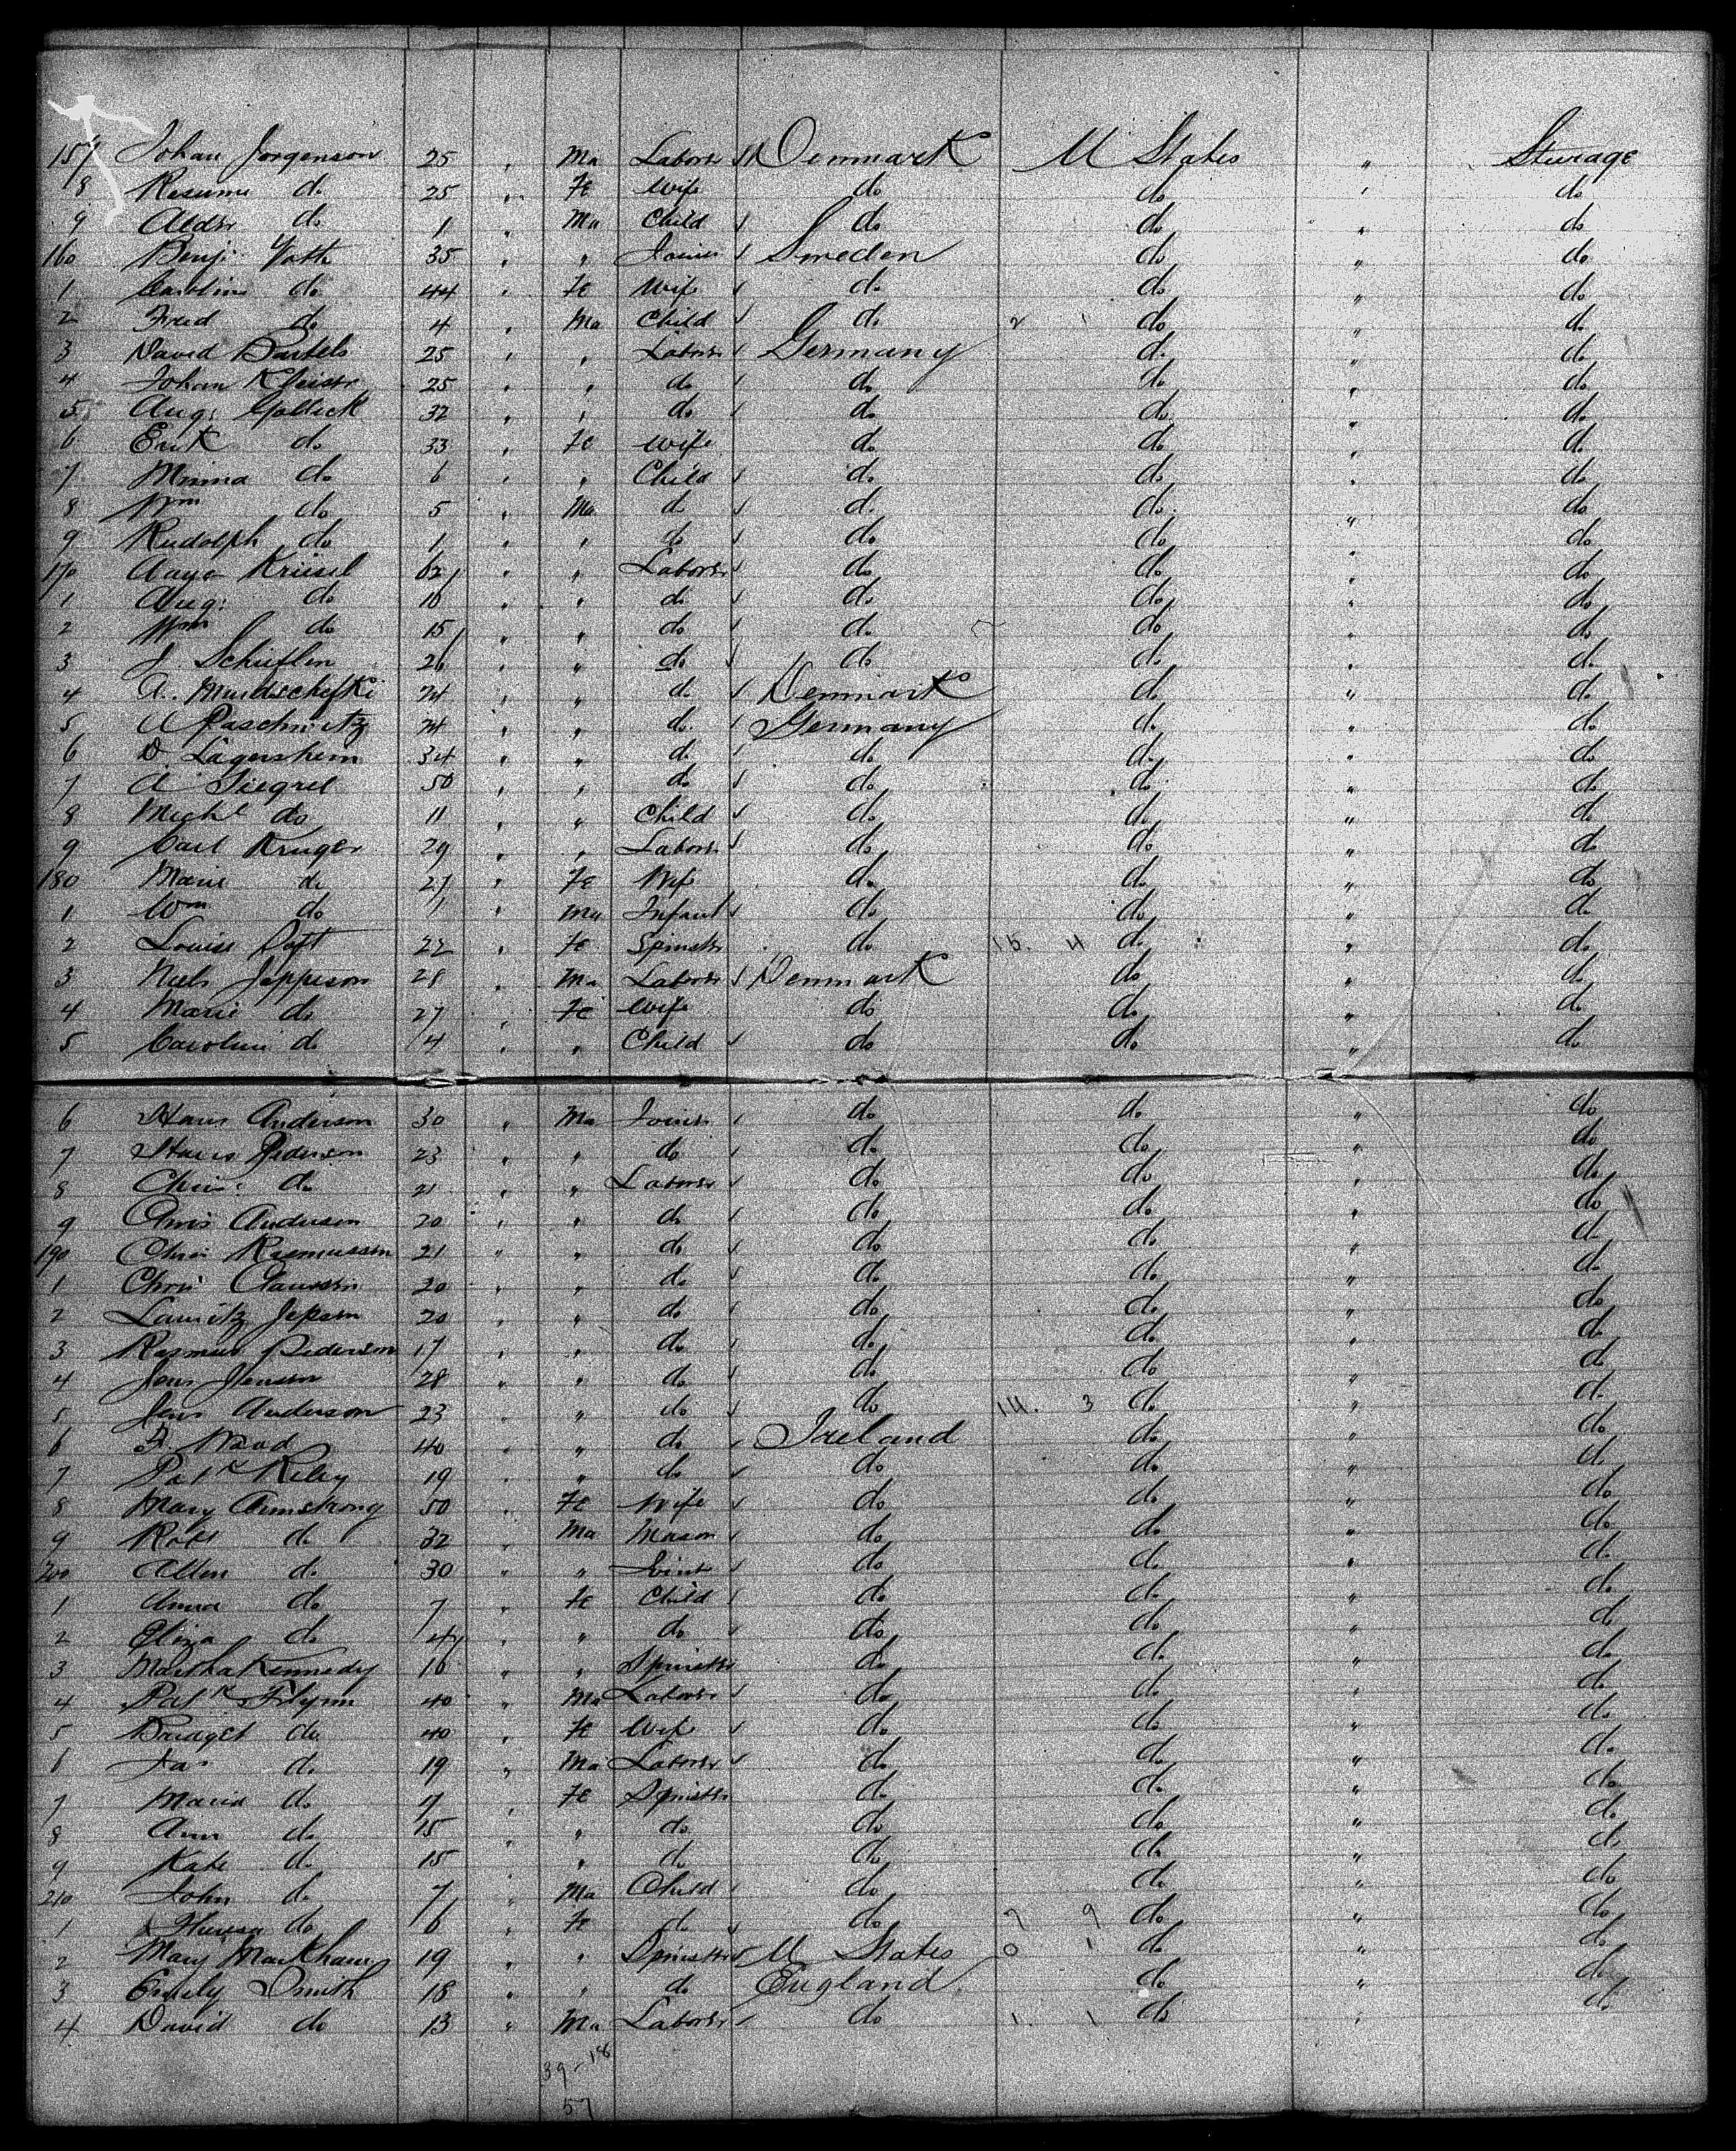 157 Johan Jorgenson 25 " Ma Laborer Denmark U States " Sturage
8 do 25 " Fe Wife do do " do
9 Aldsr do 1 " Ma Child do do " do
160 Benj. 35 " " Joiner Sweden do " do
1 Caroline do 44 " Fe Wife do do " do
2 Fred do 4 " Ma Child do 2 1 do " do
3 David Bartels 25 " " Laborer Germany do " do
4 Johan 25 " " do do do " do
5 Aug: Gollick 32 " " do do do " do
6 do 33 " Fe Wife do do " do
7 Minna do 6 " " Child do do " do
8 Wm do 5 " Ma do do do " do
9 Rudolph do 1 " " do do do " do
170 62 " " Laborer do do " do
1 Aug: do " " do do do " do
2 Wm do 15 " " do do do " do
3 J. 26 " " do do do " do
4 A. 24 " " do Denmark do " do
5 24 " " do Germany do " do
6 D. Lagersheim 34 " " do do do " do
7 A 50 " " do do do " do
8 Michl do 11 " " Child do do " do
9 Carl Kruger 29 " " Laborer do do " do
180 Marie do 27 " Fe Wife do do " do
1 Wm do 1 " Ma Infant do do " do
2 Louise 22 " Fe Spinster do 16. 4 do " do
3 Niels Jeppison 28 " Ma Laborer Denmark do " do
4 Marie do 27 " Fe Wife do do " do
5 Caroline do 4 " " Child do do " do
6 Hans Anderson 30 " Ma Joiner do do " do
7 Hans Pederson 23 " " do do do " do
8 Chris: do 21 " " Laborer do do " do
9 Chris Anderson 20 " " do do do " do
190 Chris Rasmussen 21 " " do do do " do
1 Chris Claussin 20 " " do do do " do
2 Lauritz Jepson 20 " " do do do " do
3 Rasmus Pederson 17 " " do do do " do
4 Jens Jenson 28 " " do do do " do
5 Jens Anderson 23 " " do do 14. 3 do " do
6 F. 40 " " do Ireland do " do
7 Patk Riley 19 " " do do do " do
8 Mary Armstrong 50 " Fe Wife do do " do
9 Robt do 32 " Ma Mason do do " do
200 Allen do 30 " " Joiner do do " do
1 Anna do 7 " Fe Child do do " do
2 Eliza do 4 " " do do do " do
3 Martha Kennedy " " Spinster do do " do
4 Patk Flynn 40 " Ma Laborer do do " do
5 Bridget do 40 " Fe Wife do do " do
6 Jas do 19 " Ma Laborer do do " do
7 Maria do 17 " Fe Spinster do do " do
8 Ann do 15 " " do do do " do
9 Kate do 15 " " do do do " do
210 John do 7 " Ma Child do do " do
1 Theresa do 6 " Fe do do 7 9 do " do
2 Mary Markham 19 " " Spinster U States 0 1 do " do
3 Emily Smith 18 " " do England do " do
4 David do 13 " Ma Laborer do 1. 1 do " do
39-18
57